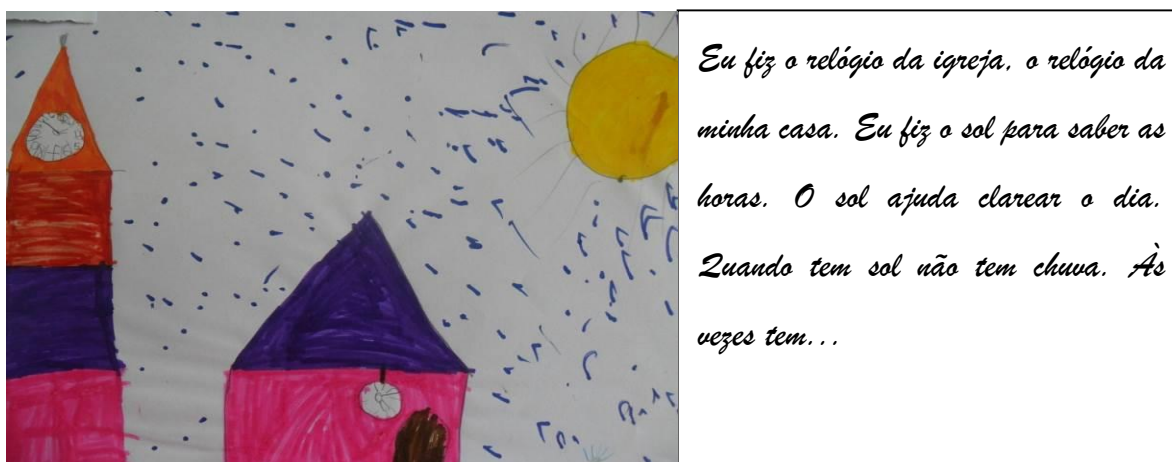 Eu fiz o relógio da igreja, o relógio da
minha casa. Eu fiz o sol para saber as
horas. O sol ajuda clarear o dia.
Quando tem sol não tem chuva. Às
vezes tem...